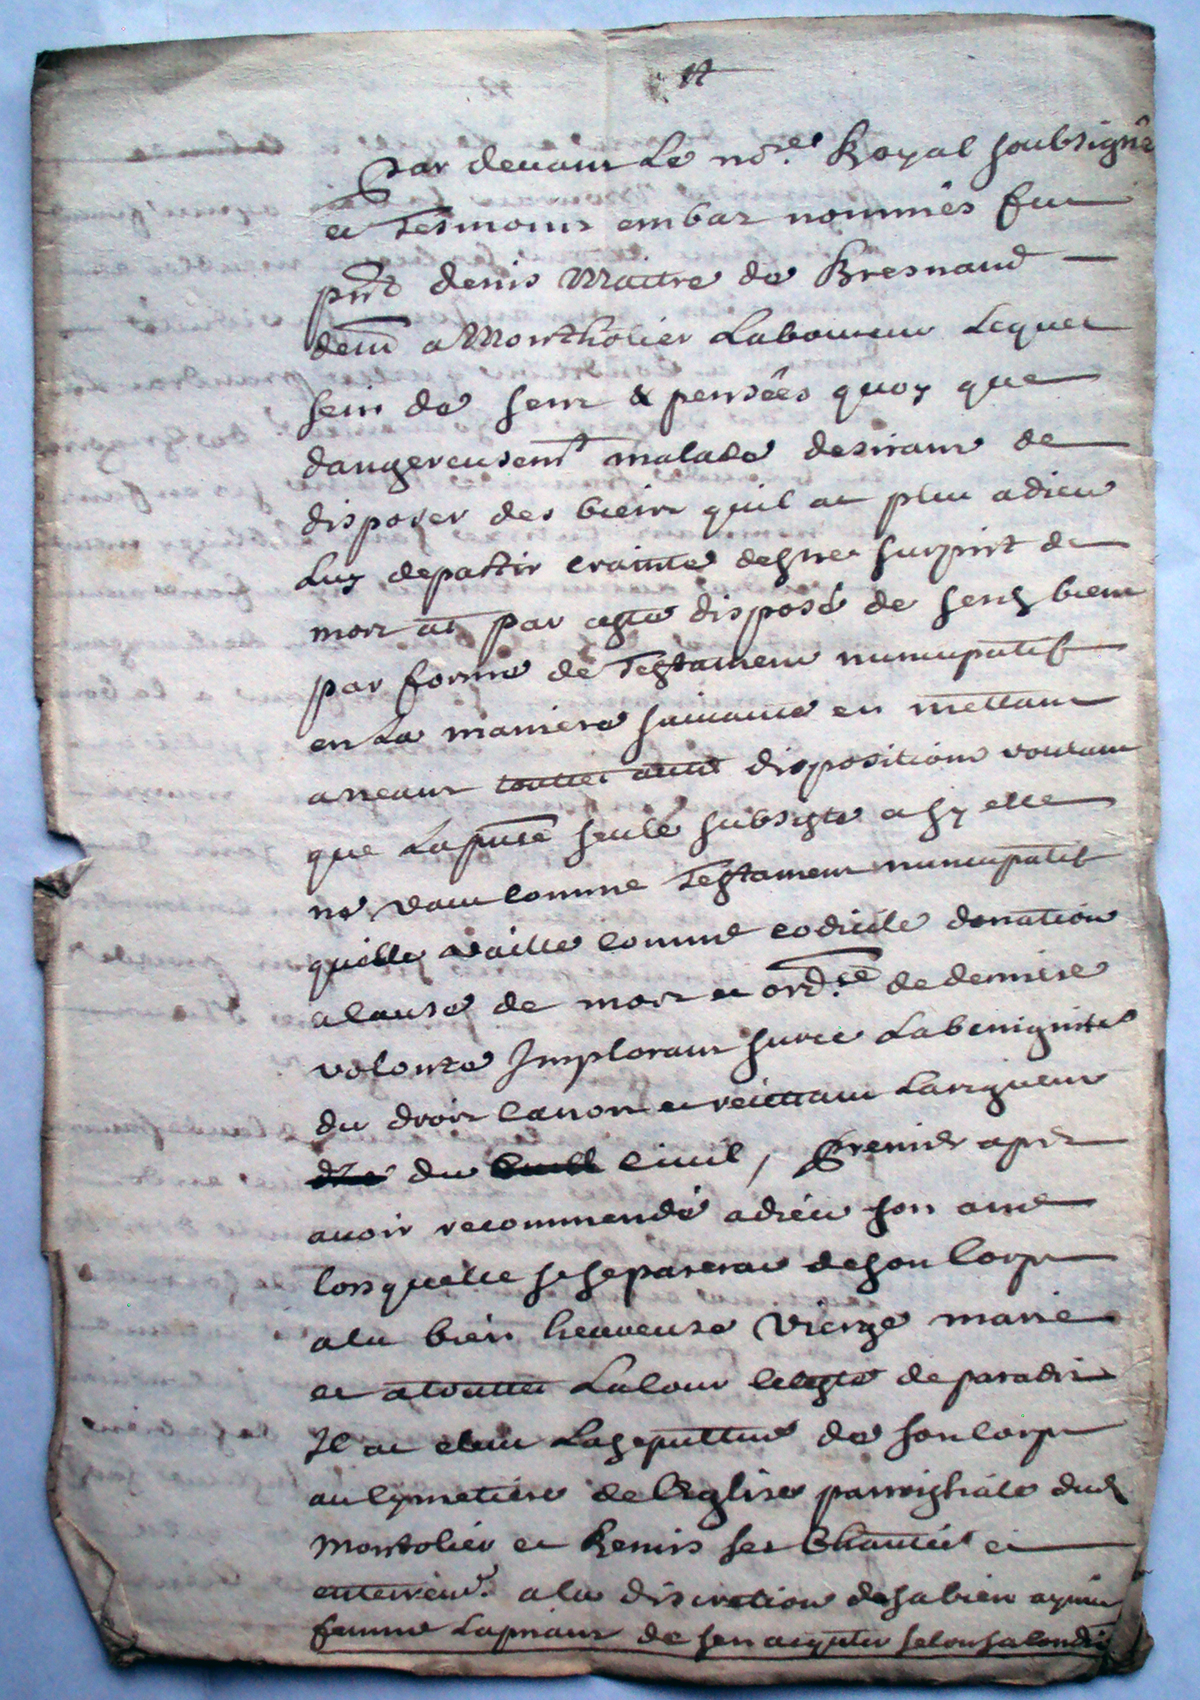 par devant Le no.re Royal soubsigné
et Tesmoins embas nommés fut
pnt denis Maitre de Bresnand
demt a Montholier Laboureur Lequel
sein de sens & pensées quoy que
dangereusemt malade desirant de
disposer des biens quil at pleu a dieu
Luy depattir crainte destre surpint de
mort at par ceste disposé de sesd biens
par forme de Testament nuncupatif
en La maniere suivante en mettant
a neant touttes autre dispositions voulant
que La pnte seule subsiste a sy elle
ne vaut comme Testament nuncupatif
quelle vaille comme codicile donation
a cause de mort et ord.ce de derniere
volonté Implorant sur ce La benignité
du droit canon et reiettant La rigueur
du civil, premier apres
avoir recommendé a dieu son ame
lors quelle se separerat de son corps
a la bien heureuse vierge marie
et a toutte La cour celeste de paradis
Il at eleu La sepulture de son corps
au cymetiere de l'Eglise parroissiale dud
Montolier et Remis ses Chantét et
enterremt. a la discretion de sa bien aymée
femme La priant de sen acquiter selon sa condi